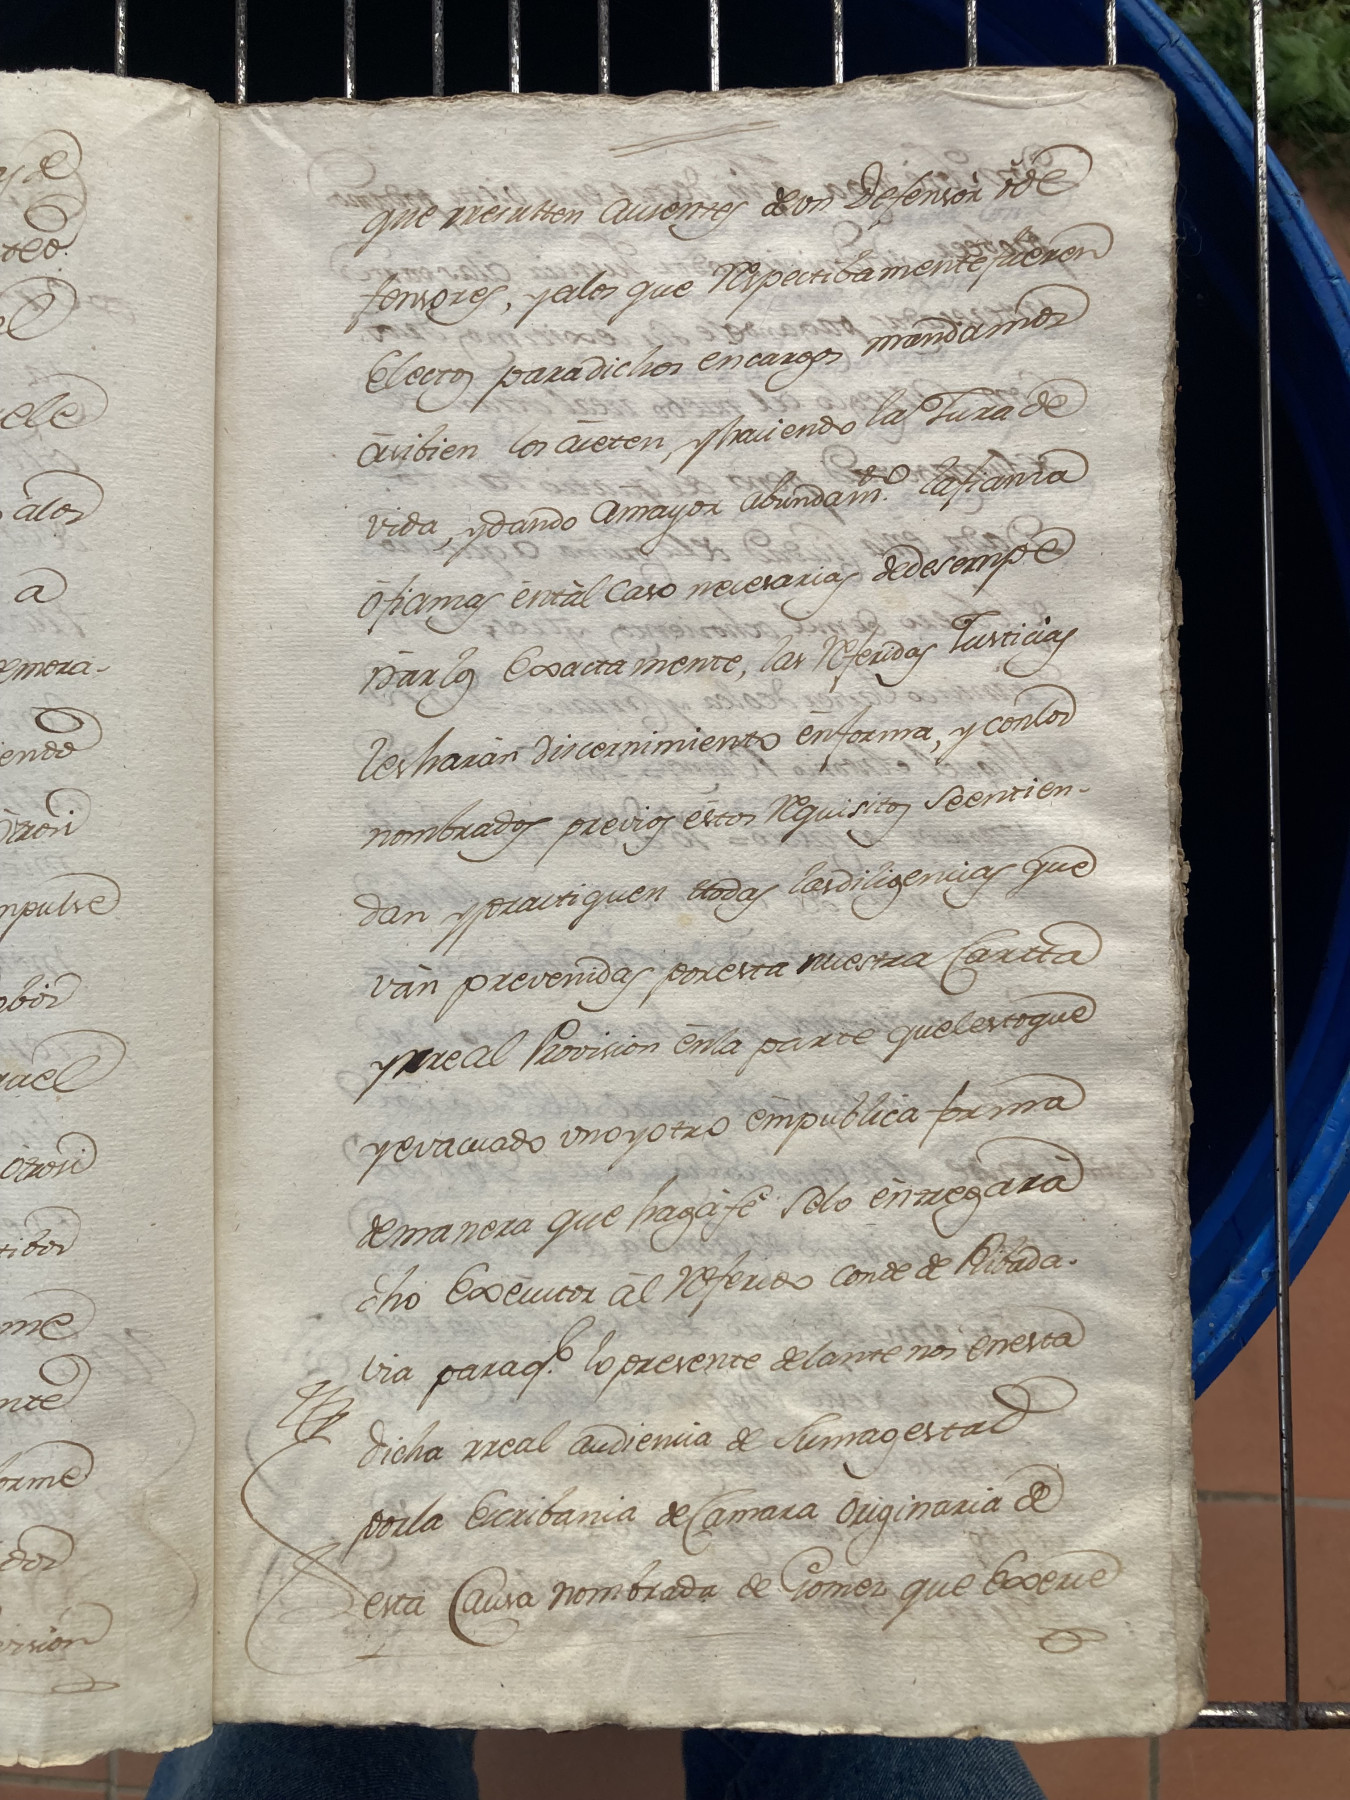 que rresulten Ausentes de un Defensor ò de
fensores, y alos que Respectibamente fueren
Electos para dichos encargos mandamos
àsibien los àceten, y haciendo la Jura de
vida, ydando amayor abundam.to lafianza
ò fianzas èntàl Caso necesarias dedesempe
ñarlos Exactamente, las Referidas Justicias
les haràn discernimiento ènforma, y conlos
nombrados previos èstos Requisitos Seentien-
dan ypractiquen ttodas lasdiligencias que
vàn prevenidas poresta nuestra Cartta
yrreal Provision ènla parte quelestoque
yevacuado unoyotro èmpublica forma
demanera que hagàfè selo èntregarà
dho Exècutor àl Referido Conde de Ribada-
via paraq.e lo presente delante nos enesta
dicha rreal audiencia de Sumagestad
porla Escribania de Camara Originaria de
esta Causa nombrada de Gomez que Exerce
y de
teo.
ele
àlos
a
emora-
iendo
òtrosi
mpulse
rael
otrosi
tibos
me
nte
forme
dor
vision